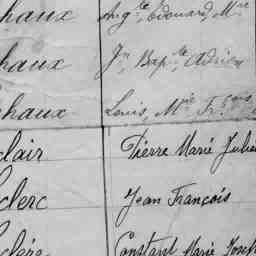 haux Aug.te, Edouard, M.ie
haux J.n, Bap.te Adrien
haux Louis, M.ie Fr.çois
clair Pierre Marie Julie
clerc Jean François
clère Constant Marie Joseph